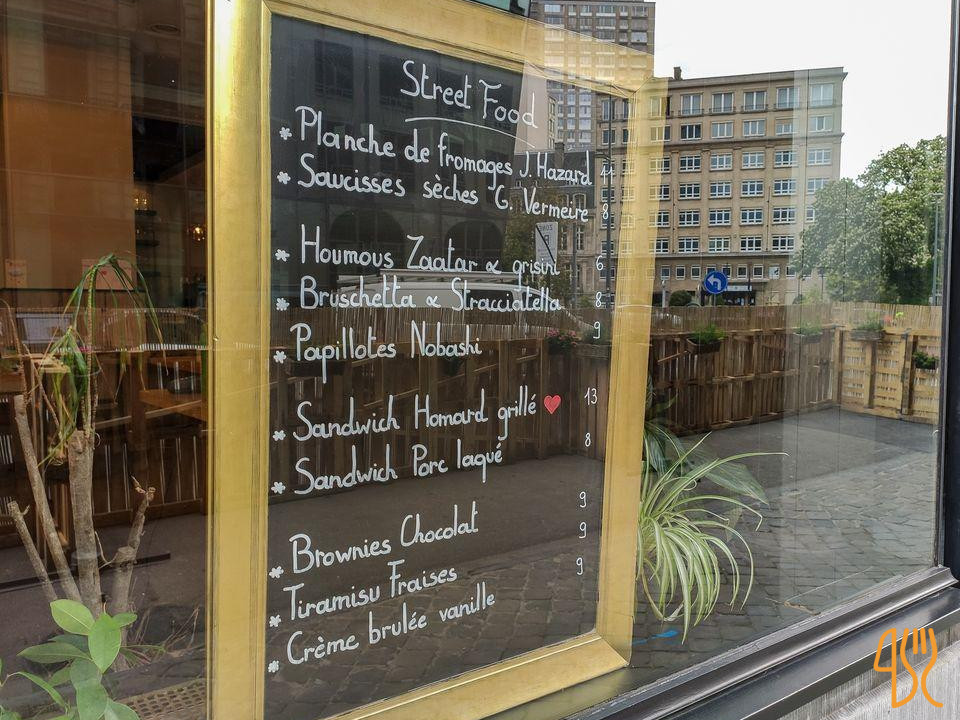 Street Food
* Planche de fromages J. Hazard 11
* Saucisses sèches G. Vermeire 8
* Houmous Zaatar & grisini 6
* Bruschetta & Stracciatella 8
* Papillotes Nobashi 9
* Sandwich Homard grillé ♥ 13
* Sandwich Porc laqué 8
* Brownies Chocolat 9
* Tiramisu Fraises 9
* Crème brulée vanille 9